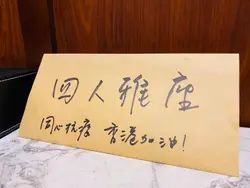 四人雅座
同心抗疫 香港加油!